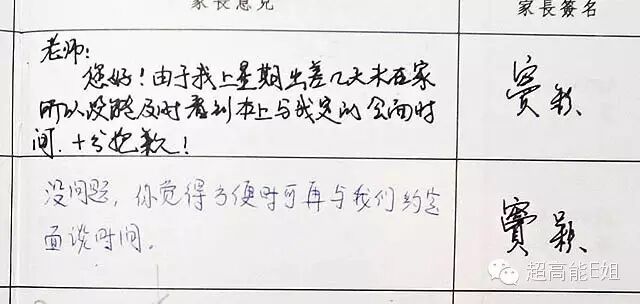 家長意見
家長簽名
老师：
您好！由于我上星期出差几天未在家
所以没能及时看到本上与我定的会面时
间．十分抱歉！
窦颖
没问题，你觉得方便时可再与我们约定
面谈时间。
窦颖
超高能E姐